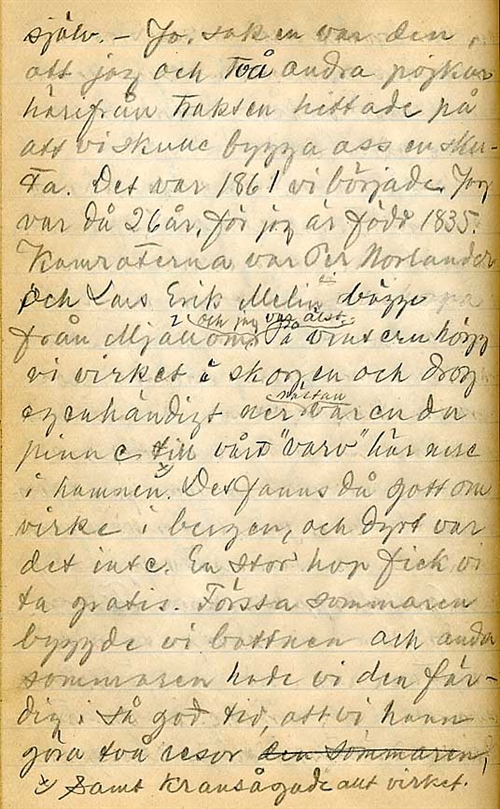 själv. – Jo, saken var den
att jag och två andra pojkar
härifrån trakten hittade på
att vi skulle bygga oss en sku-
ta. Det var 1861 vi började. Jag
var då 26 år, för jag är född 1835.
Kamraterna var Per Norlander
och Lars Erik Melin, bägge
från Mjällom, och jag var älst.
På vintern högg
vi virket i skogen och drog
egenhändigt ner nästan varenda
pinne till vårt "varv" här nere
i hamnen. x) Det fanns då gott om
virke i bergen, och dyrt var
det inte. En stor hop fick vi
ta gratis. Första sommaren
byggde vi bottnen och andra
sommaren hade vi den fär-
dig i så god tid, att vi hann
göra två resor den sommaren,
x) Samt kransågade allt virket.